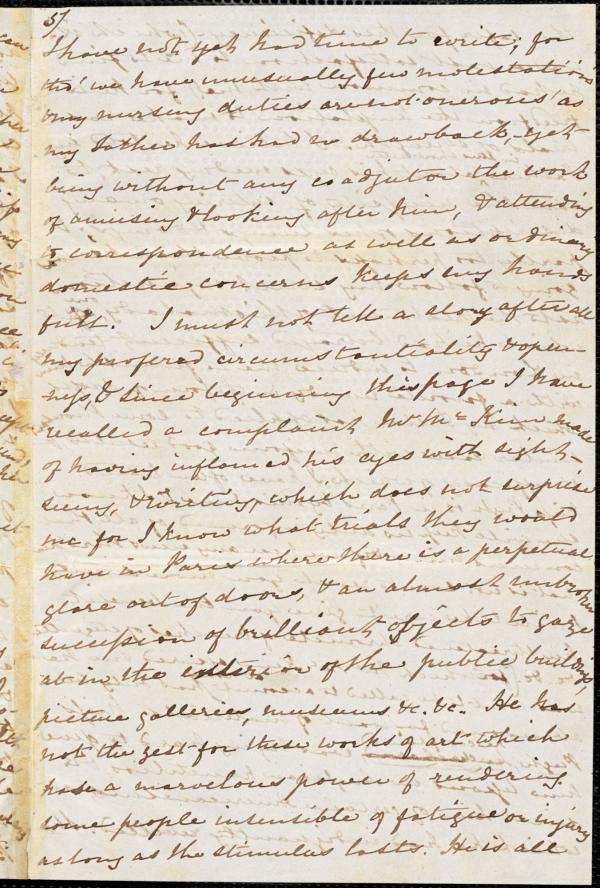 5/
I have not yet had time to write; for
tho' we have unusually few molestations
& my nursing duties are not onerous as
my Father has had no drawback, – yet
being without any coadjutor the work
of amusing & looking after him, & attending
to correspondence as well as ordinary
domestic concerns keeps my hands
full. I must not tell a story after all
my profered circumstantiality & open-
ness, & since beginning this page I have
recalled a complaint Mr. Mc.Kim made
of having inflamed his eyes with sight-
seeing, & writing, which does not surprise
me for I know what trials they would
have in Paris where there is a perpetual
glare out of doors, & an almost unbroken
succession of brilliant objects to gaze
at in the interior of the public buildings,
picture galleries, museums &c. &c. He has
not the zest for these works of art which
has a marvelous power of rendering
some people insensible of fatigue or injury
as long as the stimulus lasts. He is all